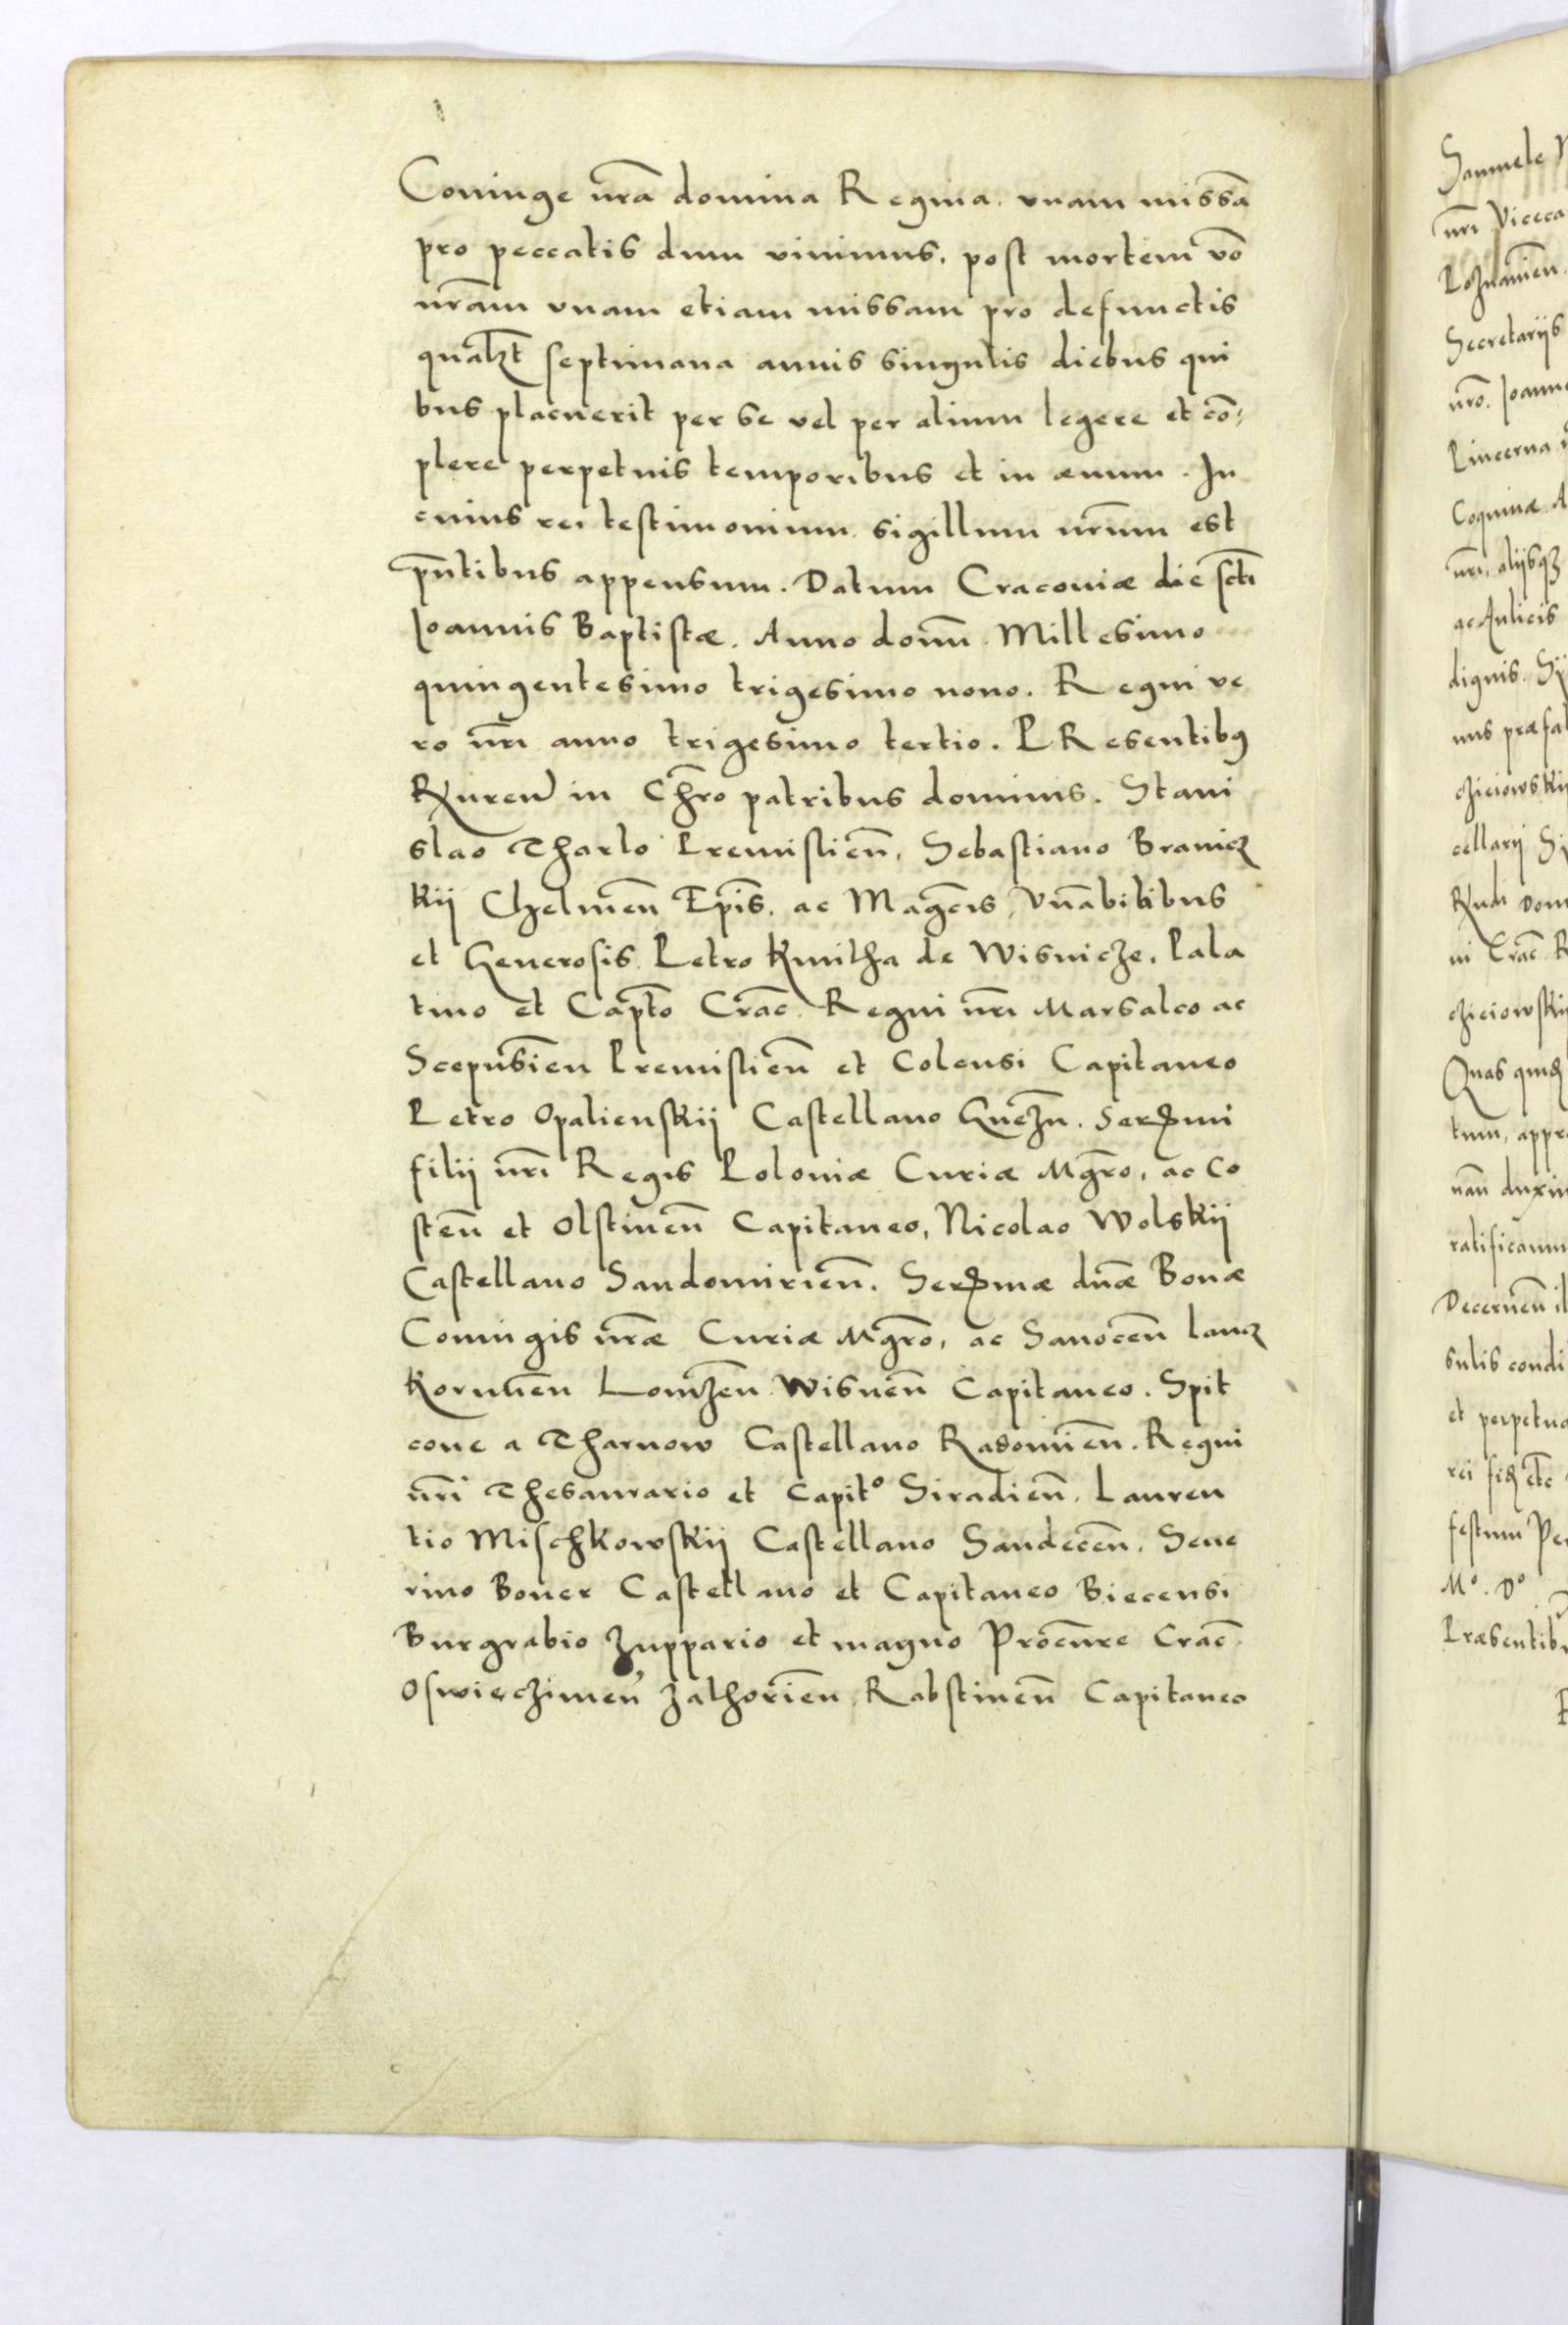 Coniuge nr̃a domina Regina. vnam missã
pro peccatis dum viuimus. post mortem võ
nr̃am vnam etiam missam pro defunctis
qualꝫt septimana annis singulis diebus qui
bus placuerit per se vel per alium legere et cõ⸗
plere perpetuis temporibus et in æuum. In
cuius rei testimonium sigillum nr̃um est
pñtibus appensum. Datum Cracouiæ die scti
Ioannis Baptistæ. Anno domñ. Millesimo
quingentesimo trigesimo nono. Regni ve
ro nr̃i anno trigesimo tertio. PResentibꝰ
in Chr̃o patribus dominis. Stani
slao Tharlo Premislieñ, Sebastiano Branicz
kij Chelmeñ Ep̃is. ac Mag̃cis, vñabilibus
et Generosis Petro Kmitha de Wisnicze. Pala
tino et Capt̃o Crac̃. Regni nr̃i Marsalco ac
Scepusieñ Premislieñ et Colensi Capitaneo
Petro Opalienskij Castellano Gnezñ. Serꝫmi
filij nr̃i Regis Poloniæ Curiæ Mgr̃o, ac Co
steñ et Olstineñ Capitaneo, Nicolao Wolskij
Castellano Sandomirieñ. Serꝫmæ dñæ Bonæ
Coniugis nr̃æ Curiæ Mgr̃o, ac Sanoceñ lancz
koruneñ Lomzeñ Wisneñ Capitaneo. Spit
cone a Tharnow Castellano Radomieñ. Regni
nr̃i Thesaurario et Capitº Siradieñ. Lauren
tio Mischkowskij Castellano Sandeceñ. Seue
rino Boner Castellano et Capitaneo Biecensi
Burgrabio Zuppario et magno Procure Crac̃.
Oswieczimeñ Zathorieñ, Rabstineñ Capitaneo
Samuele
nr̃i Viceca
Poznanieñ.
Secretarijs
nr̃o. Ioann
Pincerna
Coquinæ. A
nr̃i, alijsqꝫ
ac Aulicis
dignis. Si
nus præfat
cziciowskij
cellarij Si
Rꝫndi Dom
ni Crac̃ R
cziciowskij
Quas quidẽ
tum, appro
nañ duxim
ratificamu
Decerneñ il
sulis condi
et perpetuo
rei fidẽ etc̃
festum Pe
Mº. Dº
Præsentibu